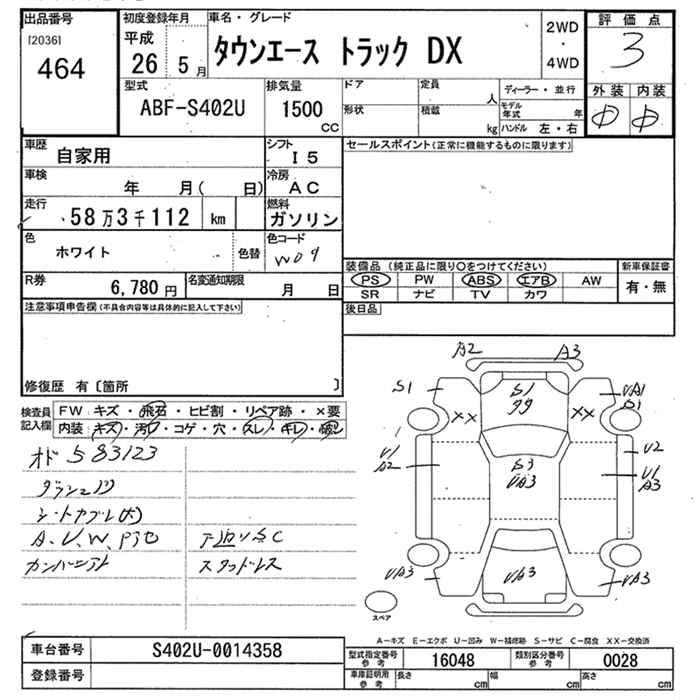 出品番号
[2036]
464
初度登録年月
平成
26 5 月
車名・グレード
タウンエース トラック DX
2WD
・
4WD
評価点
3
外装 内装
D D
型式
ABF-S402U
排気量
1500
CC
ドア
形状
定員
人
積載
kg
ディーラー・並行
モデル年式 年
ハンドル 左・右
車歴
自家用
シフト
I 5
車検
年 月( 日)
冷房
A C
走行
58 万 3 千 112 km
燃料
ガソリン
色
ホワイト
色替
色コード
W09
R券
6,780 円
名変通知期限
月 日
セールスポイント(正常に機能するものに限ります)
装備品 (純正品に限り○をつけてください)
PS PW ABS エアB AW
SR ナビ TV カワ
新車保証書
有・無
後日品
注意事項申告欄(不具合内容等は具体的に記入して下さい)
修復歴 有〔箇所 〕
検査員
記入欄
FW:キズ・飛石・ヒビ割・リペア跡・×要
内装:キズ・汚れ・コゲ・穴・スレ・キレ・
オド 583123
A、U、W、
下廻りSC
スタッドレス
A2 A3
S1
S1
99
UA1
S1
XX XX
U1
A2
S3
UA3
U2
U1
A3
UA3 UA3 UA3
スペア
A-キズ E-エクボ U-凹み W-補修跡 S-サビ C-腐食 XX-交換済
車台番号
S402U-0014358
登録番号
型式指定番号
参考
16048
類別区分番号
参考
0028
車庫証明用
参考
長さ cm
幅 cm
高さ cm